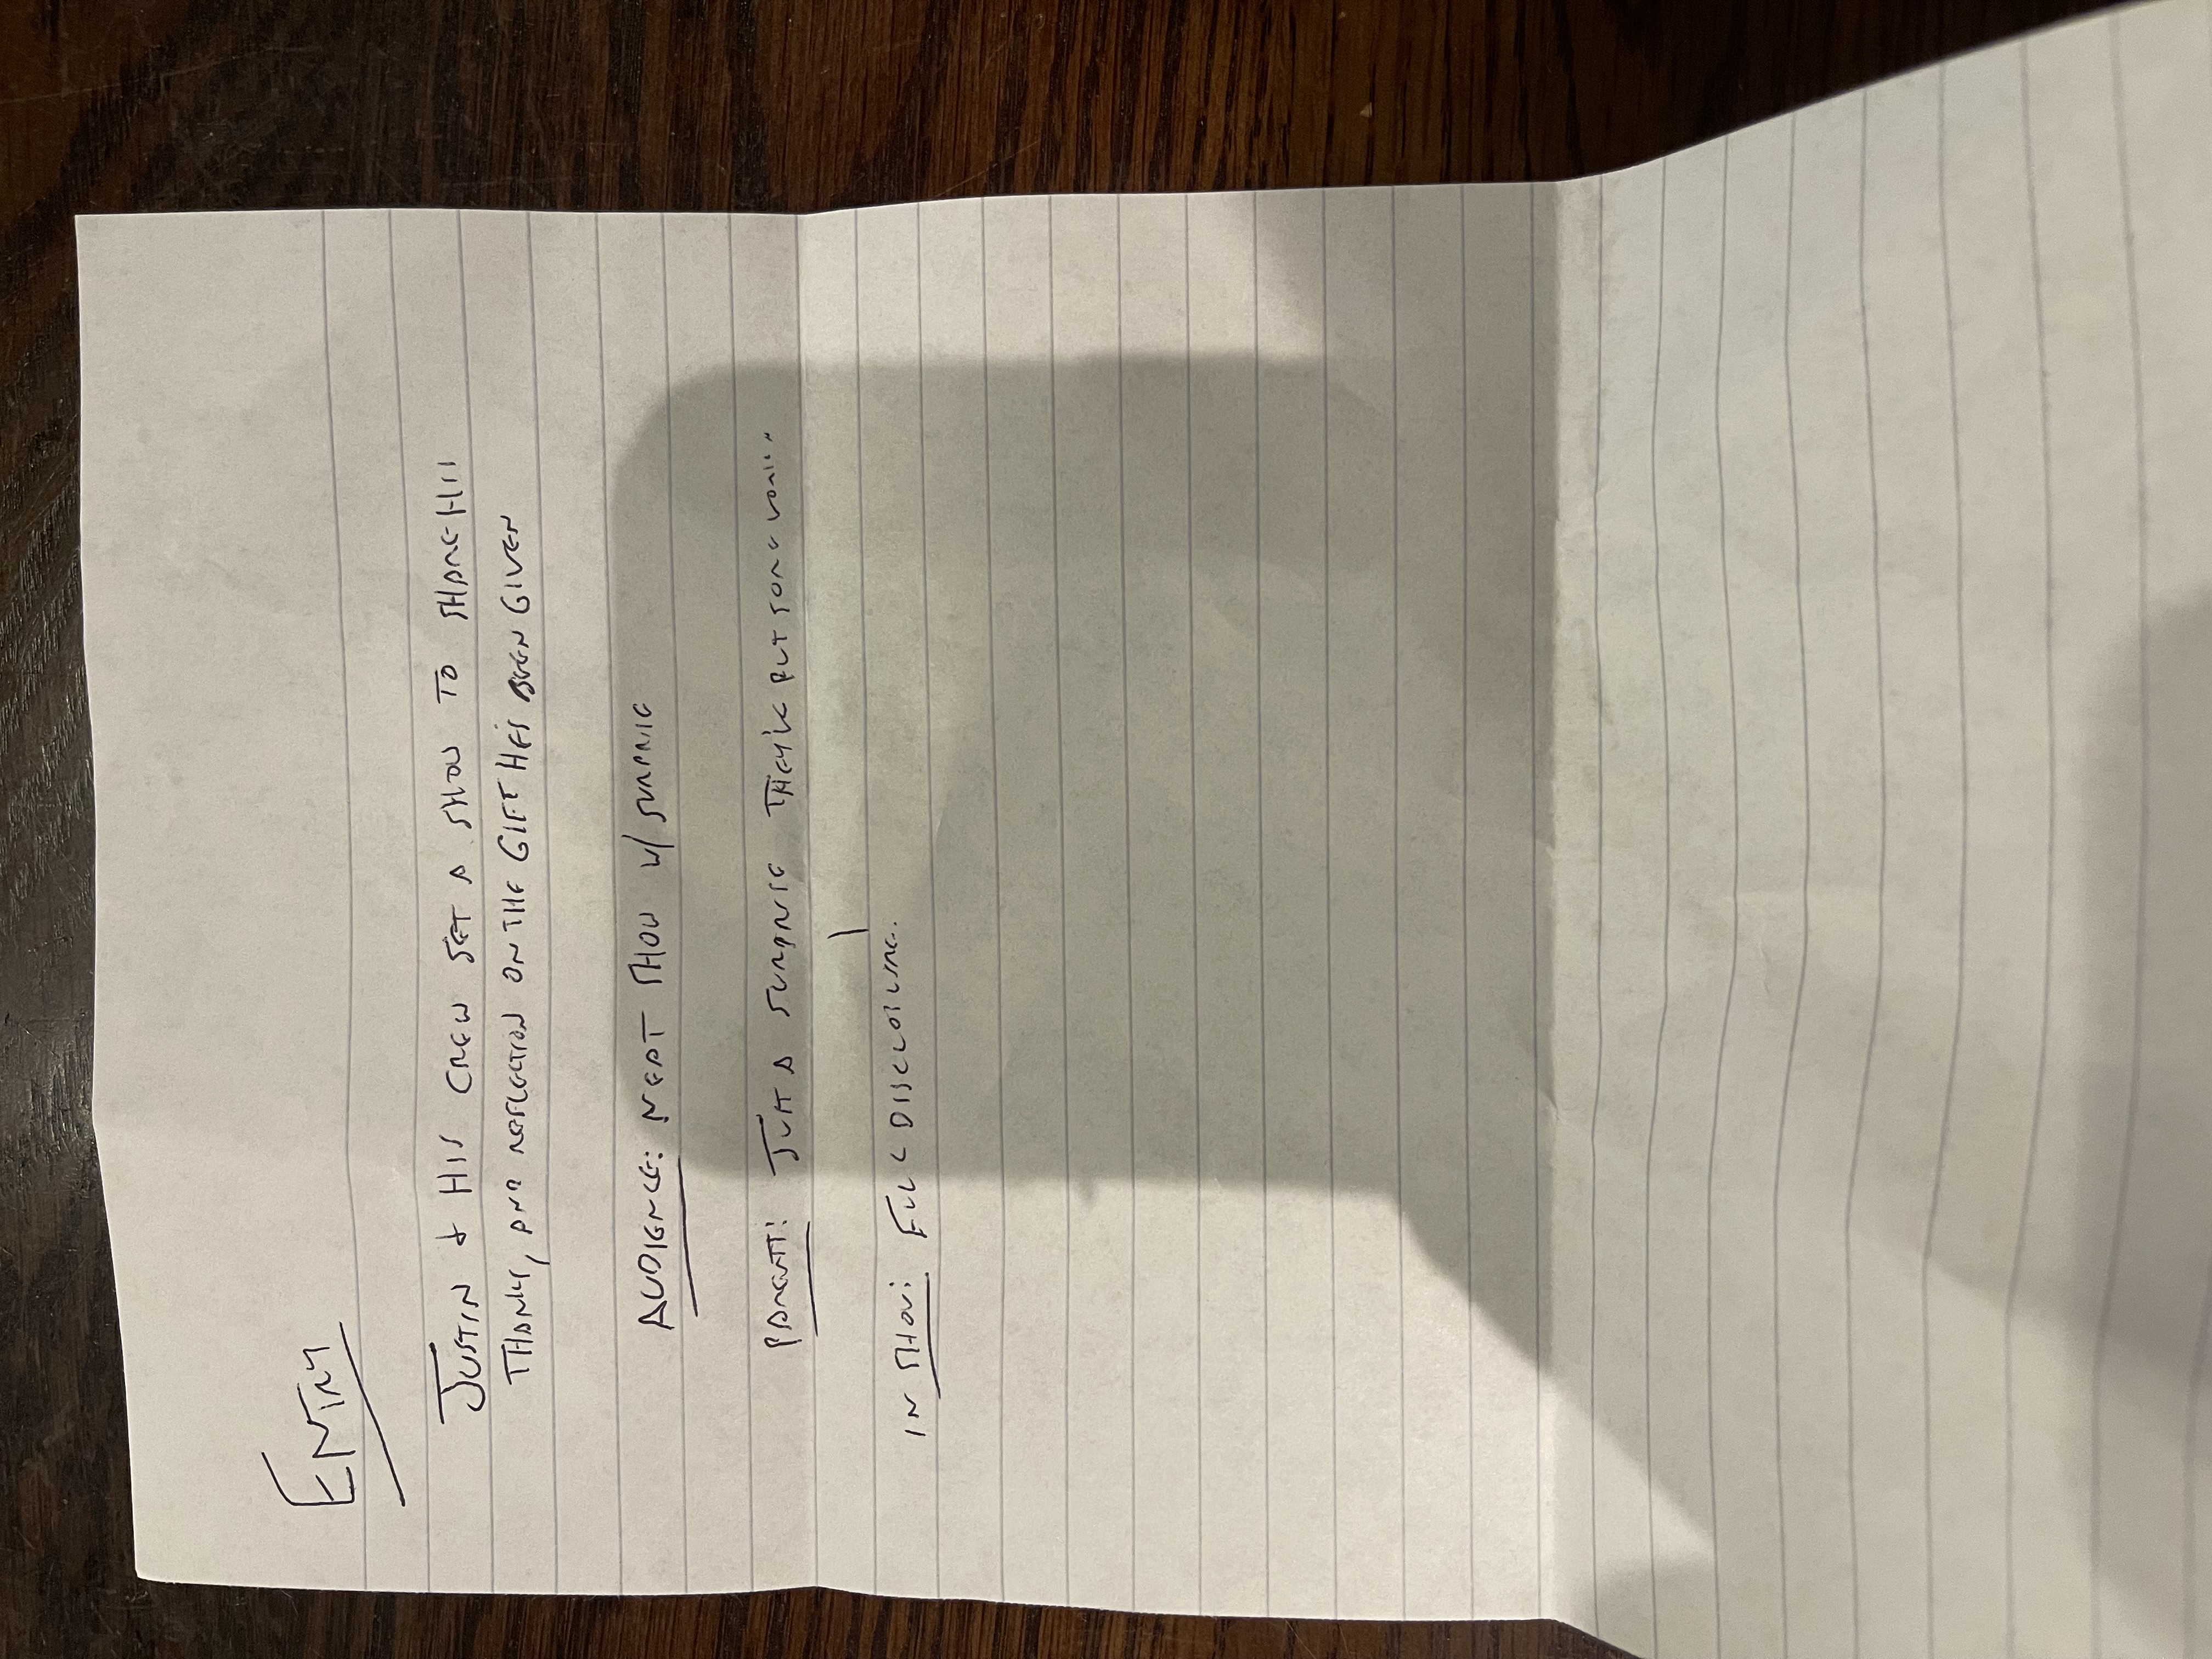 ENTRY
JUSTIN & HIS CREW SET A SHOW TO SHARE HIS
THANKS, AND REFLECTION ON THE GIFT HE'S BEEN GIVEN
AUDIENCE: NEAT SHOW W/ SURPRISE
PARENTS: JUST A SURPRISE THEY'VE PUT SOME
IN SHOW: FULL DISCLOSURE.